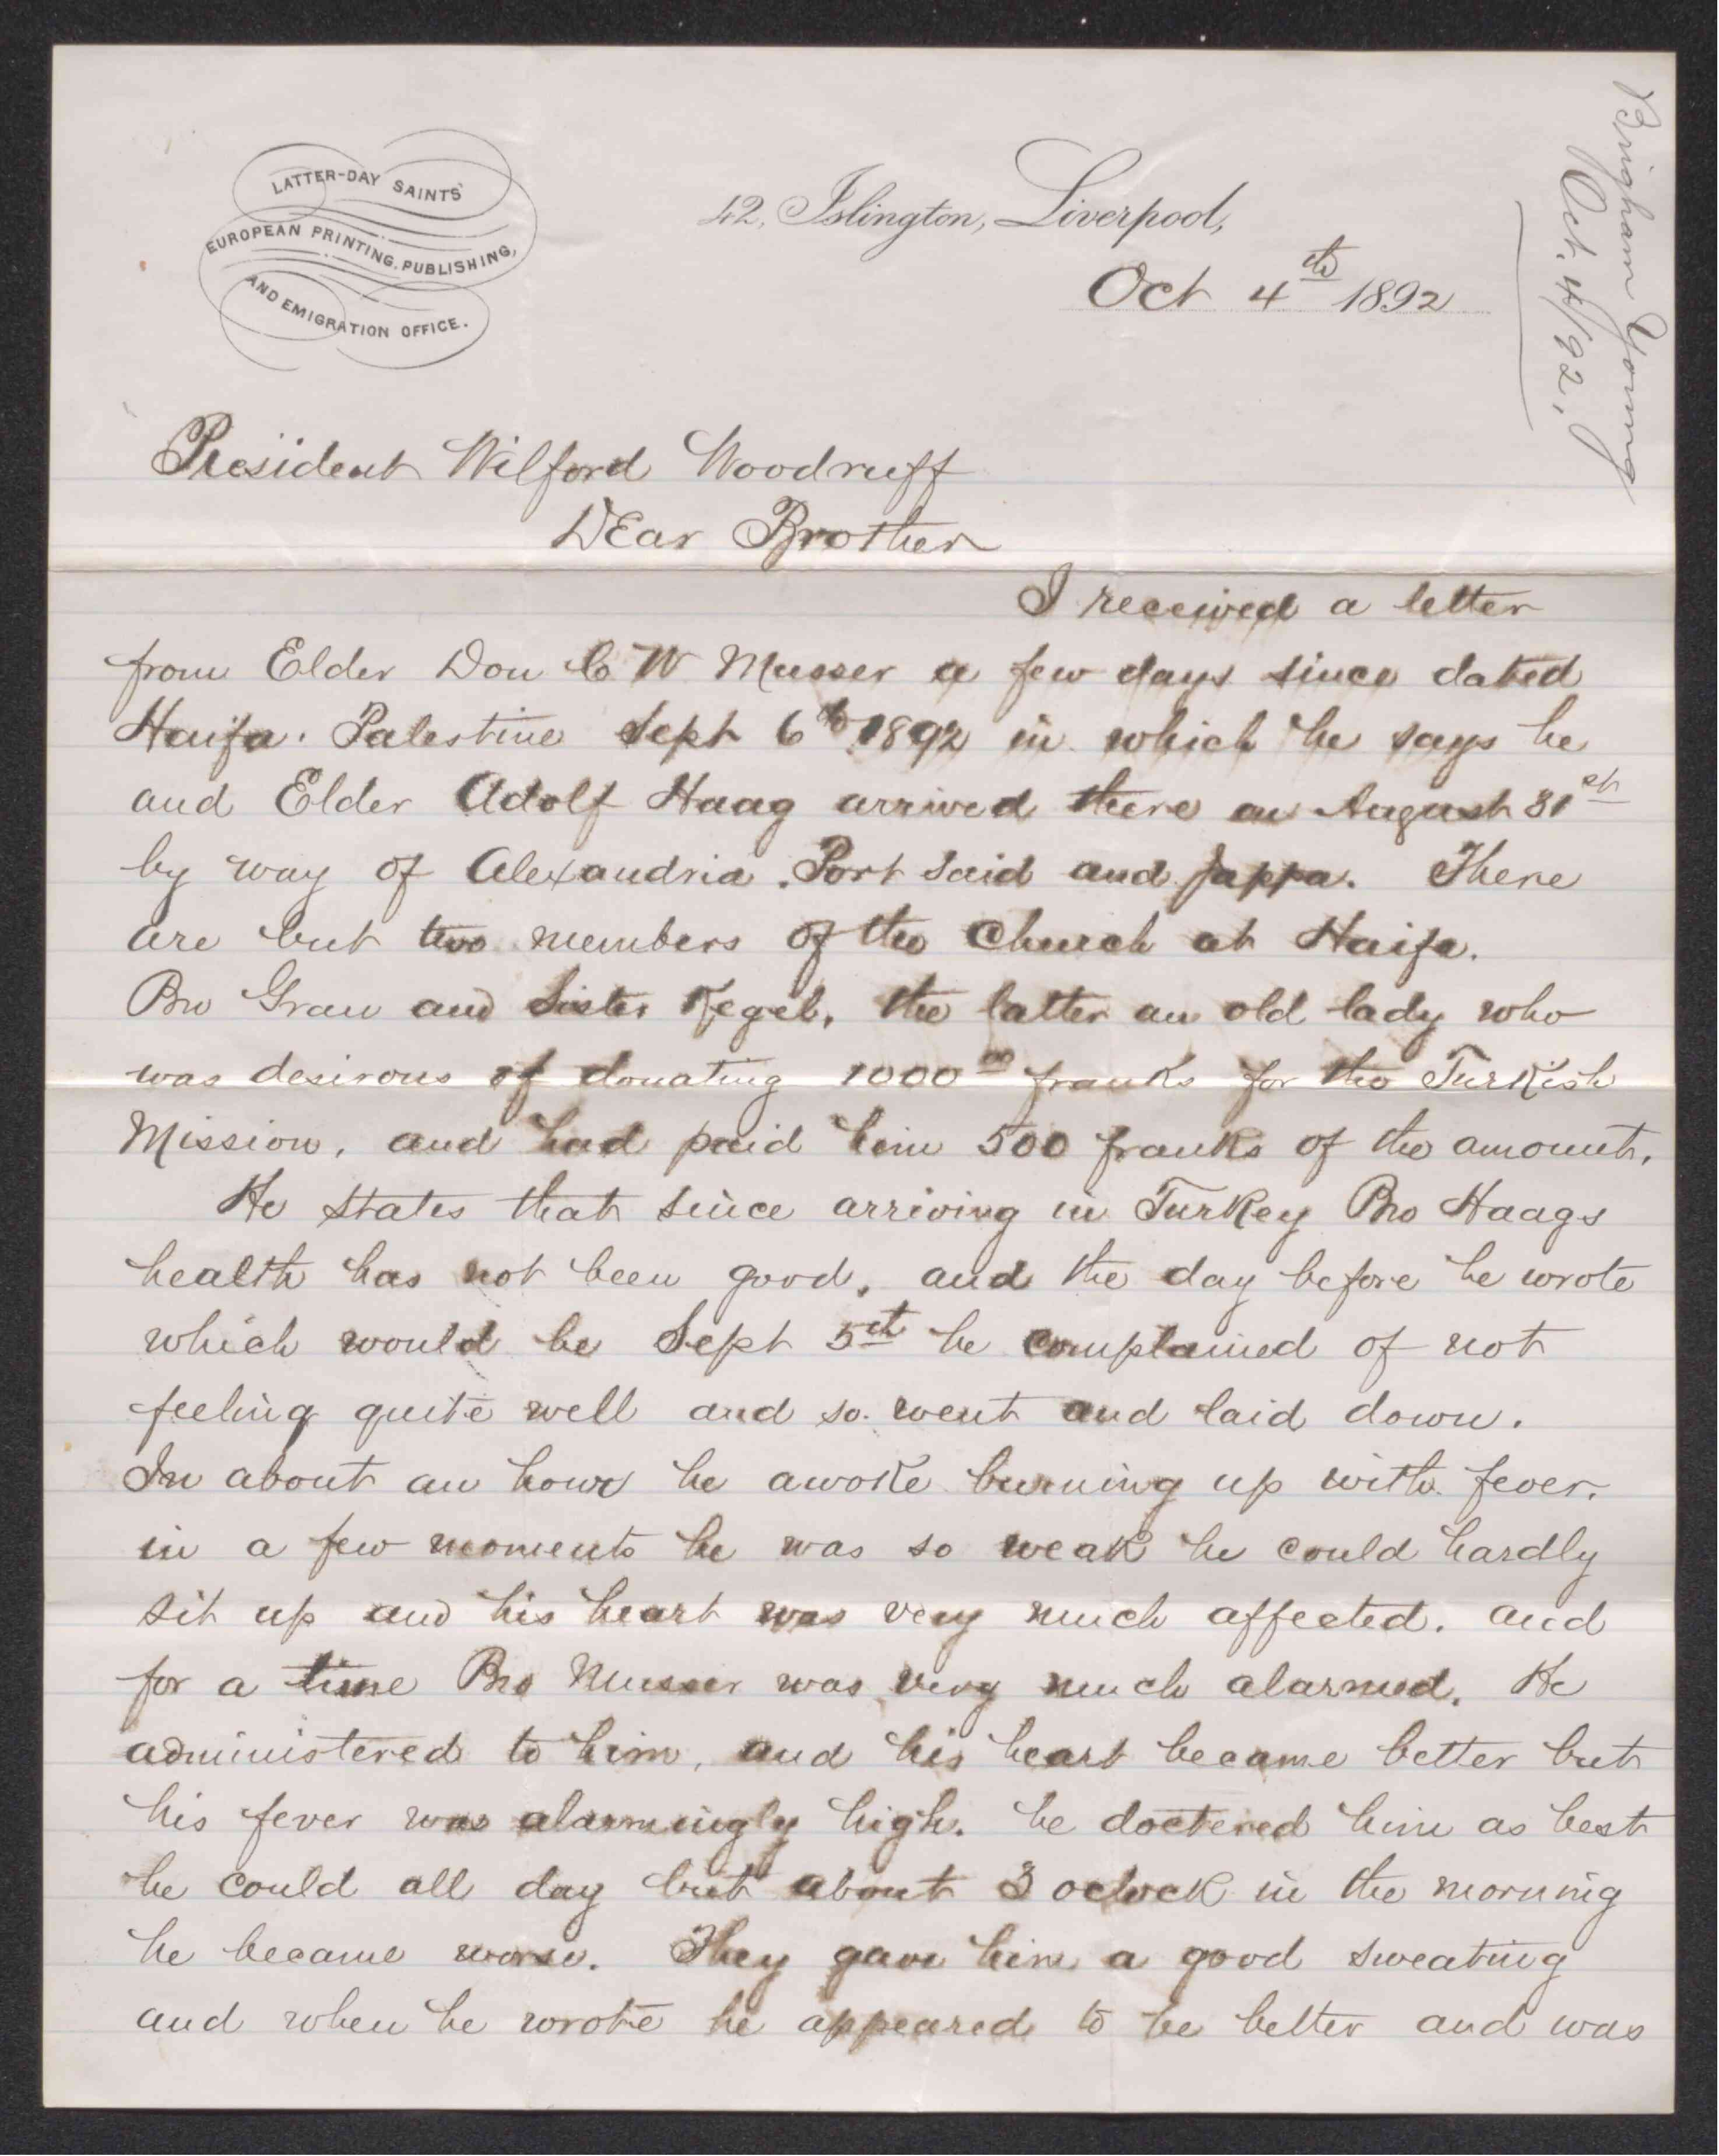 LATTER-DAY SAINTS'
EUROPEAN PRINTING, PUBLISHING,
AND EMIGRATION OFFICE.
42, Islington, Liverpool,
Oct 4th 1892
Brigham Young
Oct. 4/92.
President Wilford Woodruff
Dear Brother
I received a letter
from Elder Don C W Musser a few days since dated
Haifa. Palestine Sept 6th 1892 in which he says he
and Elder Adolf Haag arrived there on August 31st
by way of Alexandria. Port Said and Jappa. There
are but two members of the Church at Haifa.
Bro Grau and Sister Kegel, the latter an old lady who
was desirous of donating 1000 00 franks for the Turkish
Mission, and had paid him 500 franks of the amount.
He states that since arriving in Turkey Bro Haags
health has not been good, and the day before he wrote
which would be Sept 5th he complained of not
feeling quite well and so went and laid down.
In about an hour he awoke burning up with fever.
in a few moments he was so weak he could hardly
sit up and his heart was very much affected. and
for a time Bro Musser was very much alarmed. He
administered to him, and his heart became better but
his fever was alarmingly high. he doctered him as best
he could all day but about 3 oclock in the morning
he became worse. They gave him a good sweating
and when he wrote he appeared to be better and was